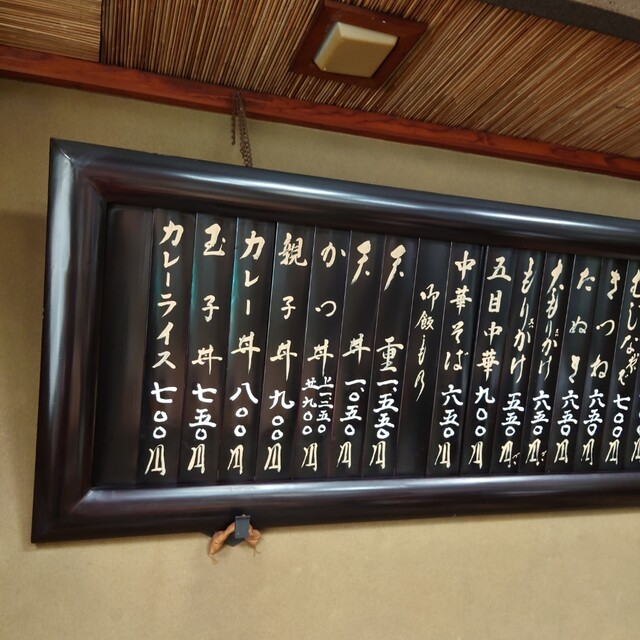 きつね 六五〇円
たぬき 六五〇円
大もりかけ 六五〇円
もりかけ 五五〇円
五目中華 九〇〇円
中華そば 六五〇円
御飯もの
天重 一、五五〇円
天丼 一、〇五〇円
かつ丼 上一、二五〇 並九〇〇円
親子丼 九〇〇円
カレー丼 八〇〇円
玉子丼 七五〇円
カレーライス 七〇〇円